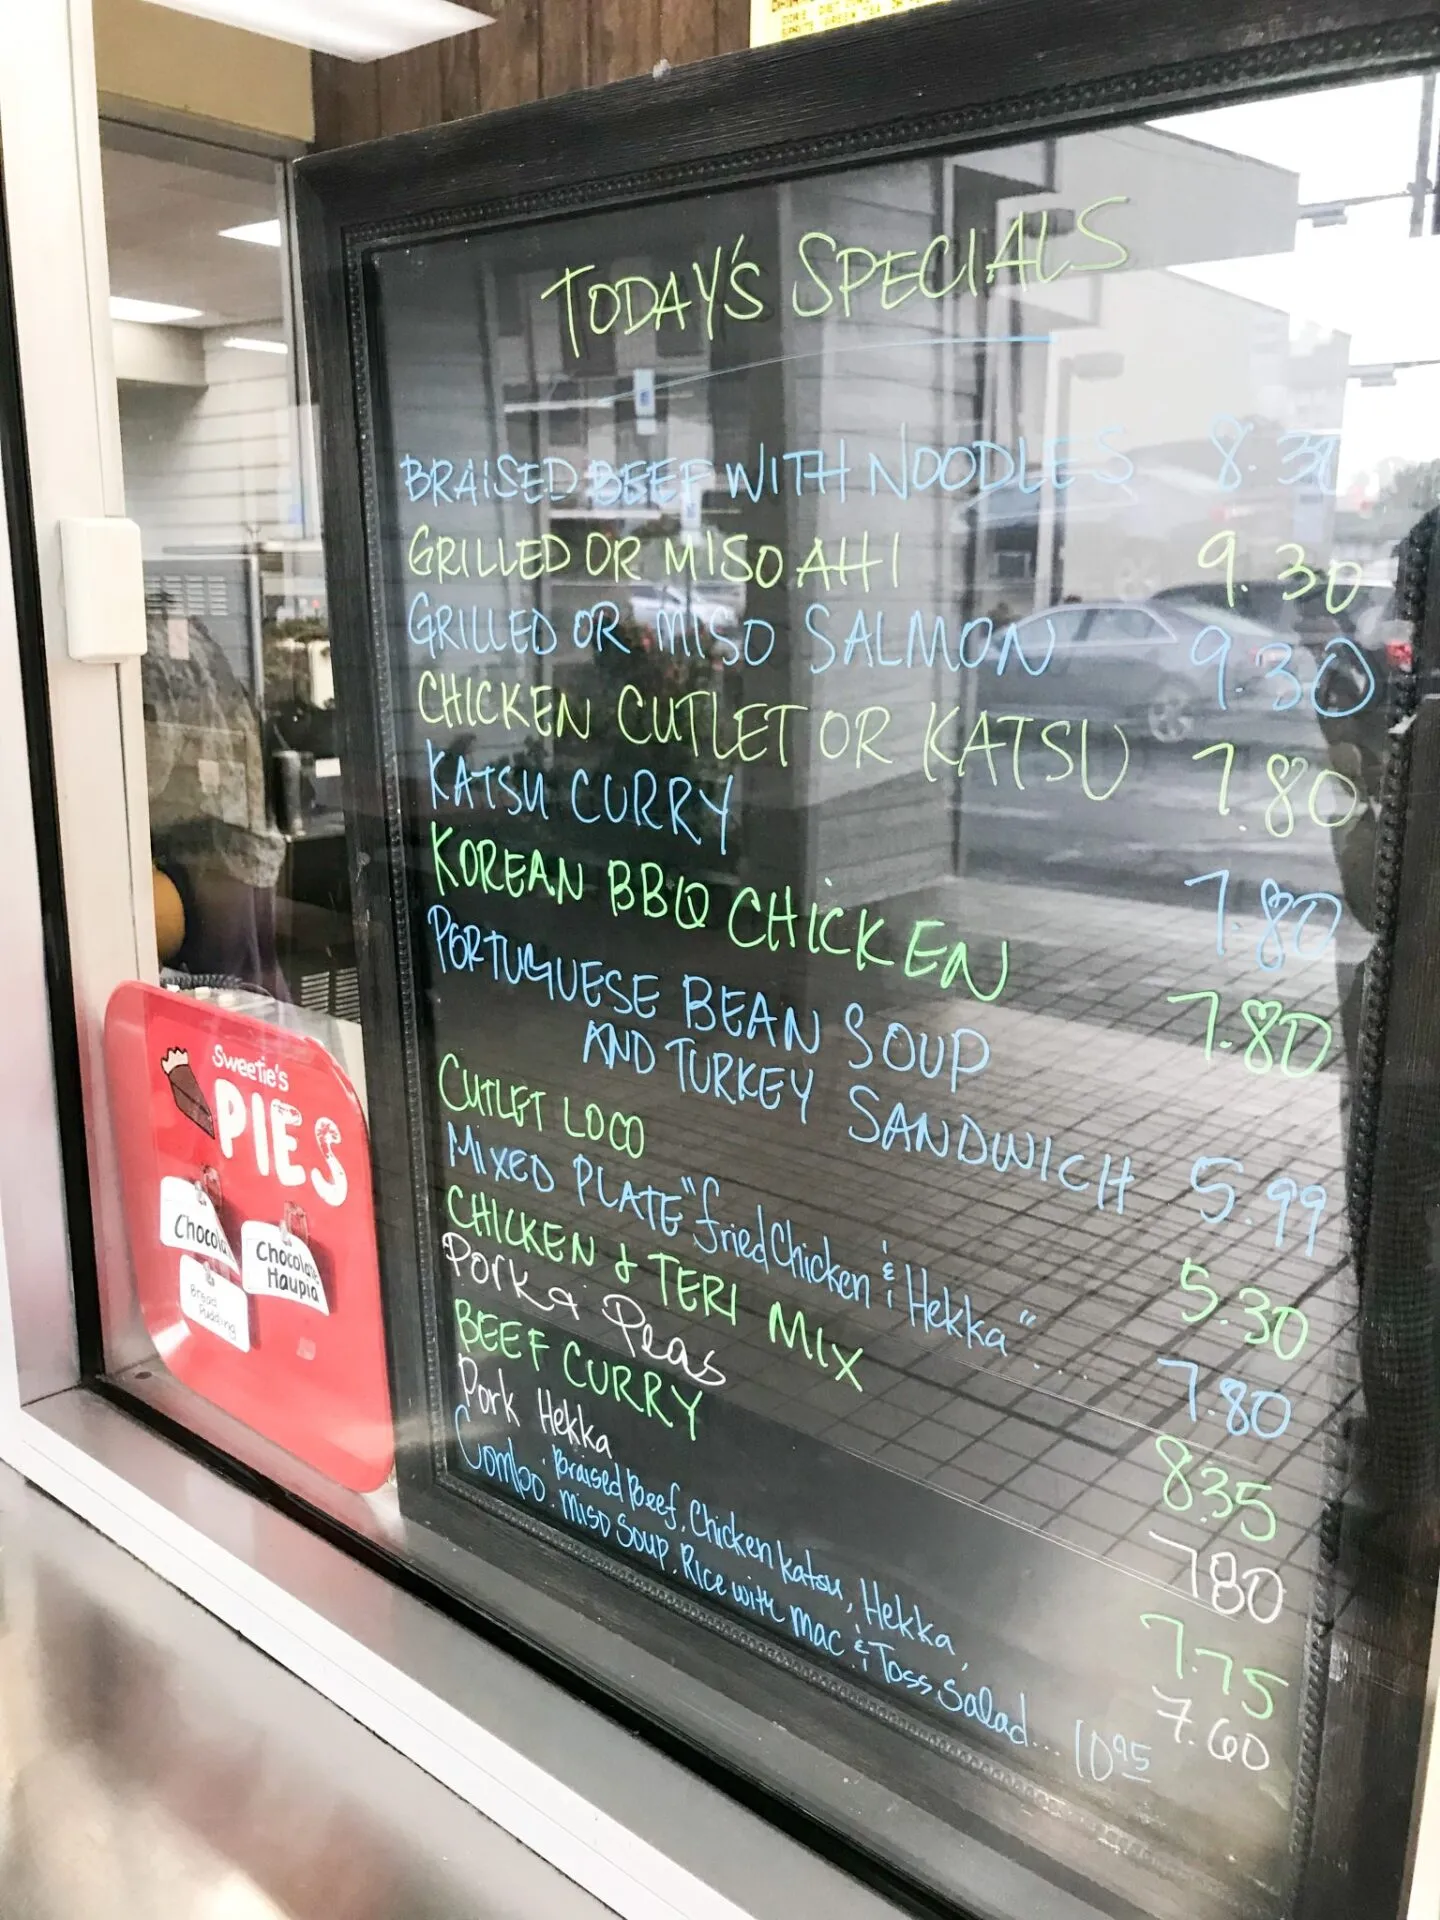 TODAY'S SPECIALS
BRAISED BEEF WITH NOODLES 8.30
GRILLED OR MISO AHI 9.30
GRILLED OR MISO SALMON 9.30
CHICKEN CUTLET OR KATSU 7.80
KATSU CURRY 7.80
KOREAN BBQ CHICKEN 7.80
PORTUGUESE BEAN SOUP
AND TURKEY SANDWICH 5.99
CUTLET LOCO 5.30
MIXED PLATE "fried Chicken & Hekka".. 7.80
CHICKEN & TERI MIX 835
Pork & Peas 780
BEEF CURRY 7.75
Pork Hekka 7.60
Combo. Braised Beef, Chicken Katsu, Hekka,
Miso Soup. Rice with Mac & Toss Salad... 10 95
Sweetie's
PIES
Chocola
Chocolate
Haupia
Bread
Pudding